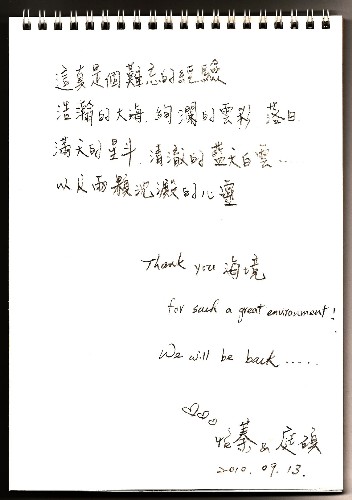 這真是個難忘的經驗
浩瀚的大海. 絢瀾的雲彩. 落日.
滿天的星斗. 清澈的藍天白雲.....
以及兩顆沉澱的心靈
Thank you 海境
for such a great environment!
We will be back.....
蓁 & 庭碩
2010. 09. 13.